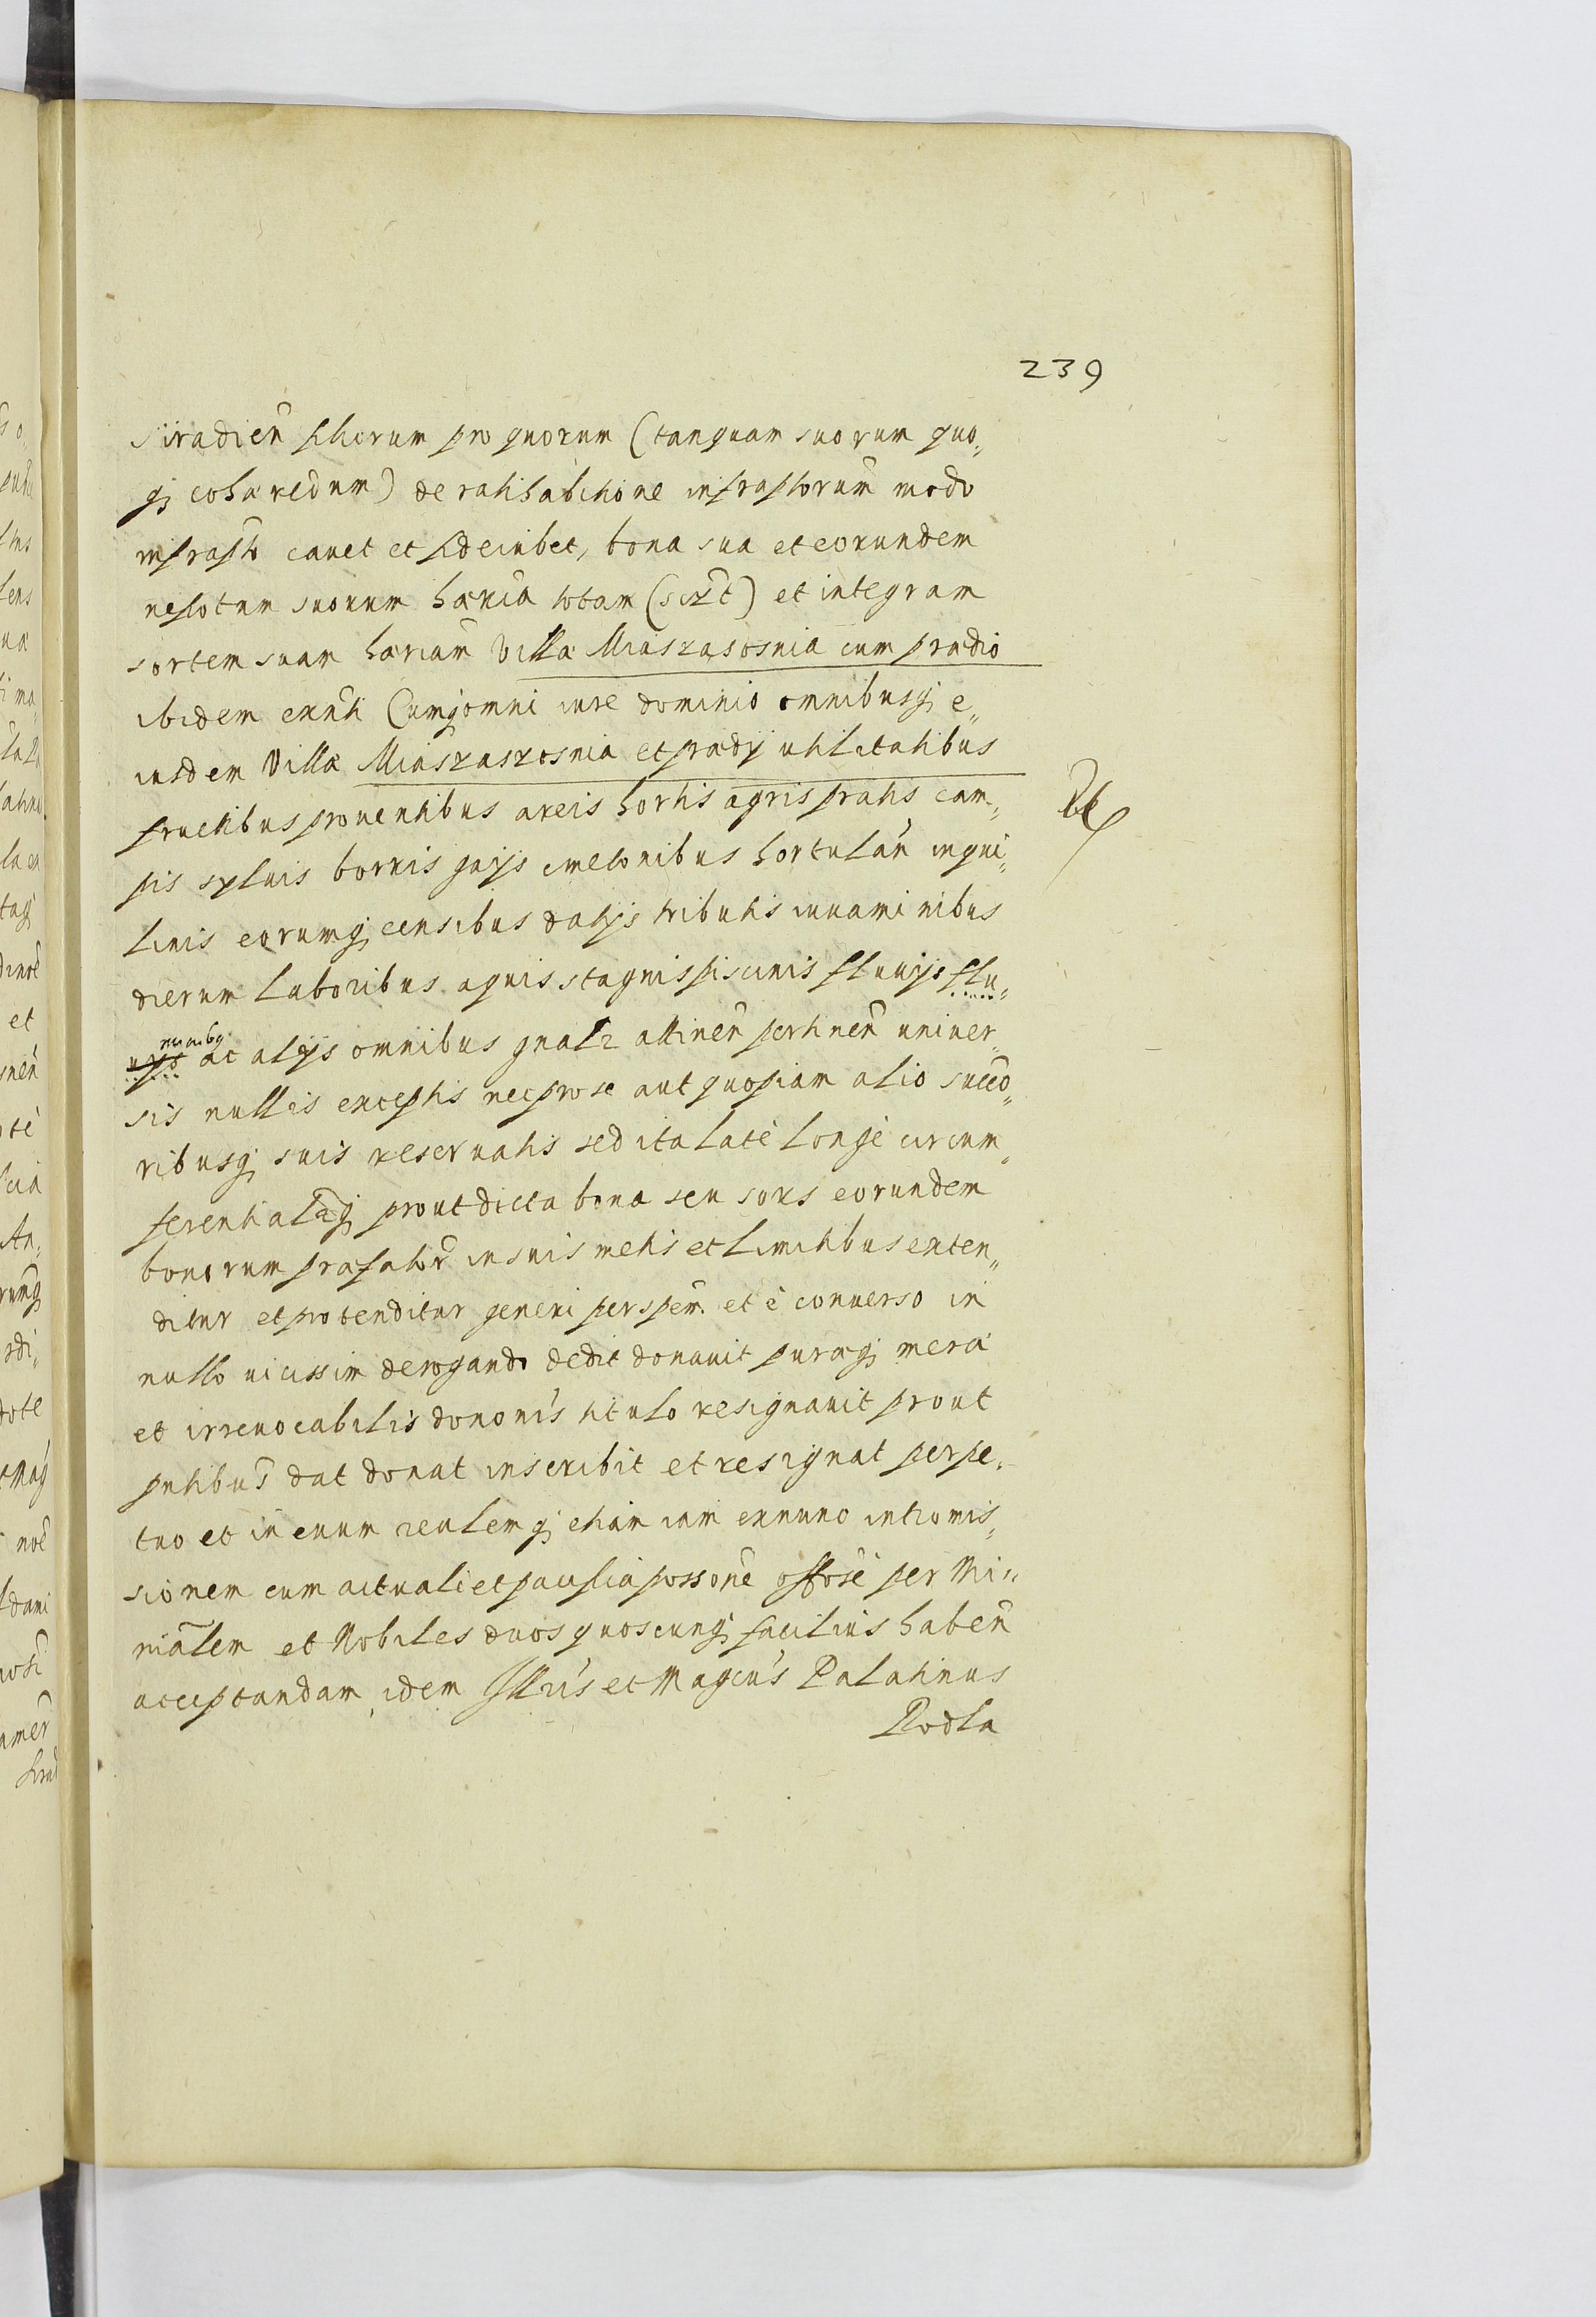 239
siradien̄ filiorum pro quorum (tanquam suorum quo„
qȝ cohæredum) de ratihabitione infraptorum̄ modo
infrapto cauet et fideiubet, bona sua et eorundem
nepotum suorum hæria totam (scz̄t) et integram
sortem suam hæriam̄ Villæ Miaszasosnia cum prædio
ibidem exn̄ti Cumqȝ omni iure dominio omnibusqȝ e„
iusdem Villæ Miaszaszosnia et prædij utilitatibus
fructibus prouentibus areis hortis agris pratis cam„
pis syluis borris gajis cmetonibus hortulan̄ inqui„
linis eorumqȝ censibus datijs tributis iuuaminibus
dierum laboribus aquis stagnis piscinis fluuijs flu„
minibȝ ac alijs omnibus gnalr attinen̄ pertinen̄ uniuer„
sis nullis exceptis nec pro se aut quopiam alio succo„
ribusqȝ suis reseruatis sed ita latè longè circum„
ferentialrqȝ prout dicta bona seu sors eorundem
bonorum præfator̄ in suis metis et limitibus exten„
ditur et protenditur generi per spem̄. et è conuerso in
nullo uicissim derogando dedit donauit puræqȝ meræ
et irreuocabilis dononis titulo resignauit prout
pntibus dat donat inscribit et resignat perpe„
tuo et in æuum realemqȝ etiam iam exnunc intromis„
sionem cum actuali et pacifica possone
nialem et Nobiles duos quoscunqȝ facilius haben̄
acceptandam idem Illris et Magcus Palatinus
Podla